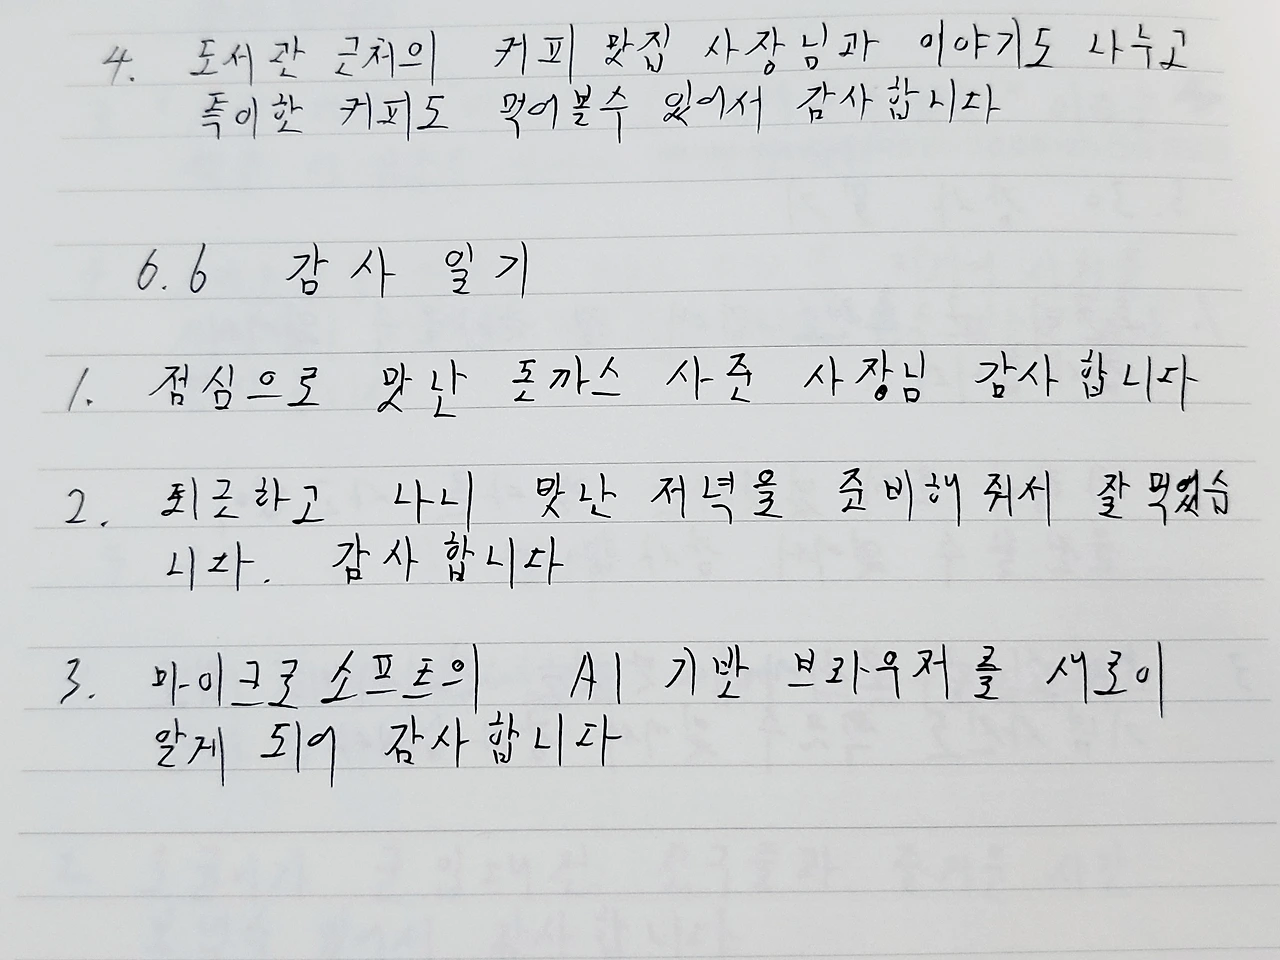 4. 도서관 근처의 커피 맛집 사장님과 이야기도 나누고
특이한 커피도 먹어볼수 있어서 감사합니다
6.6 감사 일기
1. 점심으로 맛난 돈까스 사준 사장님 감사합니다
2. 퇴근하고 나니 맛난 저녁을 준비해줘서 잘 먹었습
니다. 감사합니다
3. 마이크로소프트의 AI 기반 브라우저를 새로이
알게 되어 감사합니다